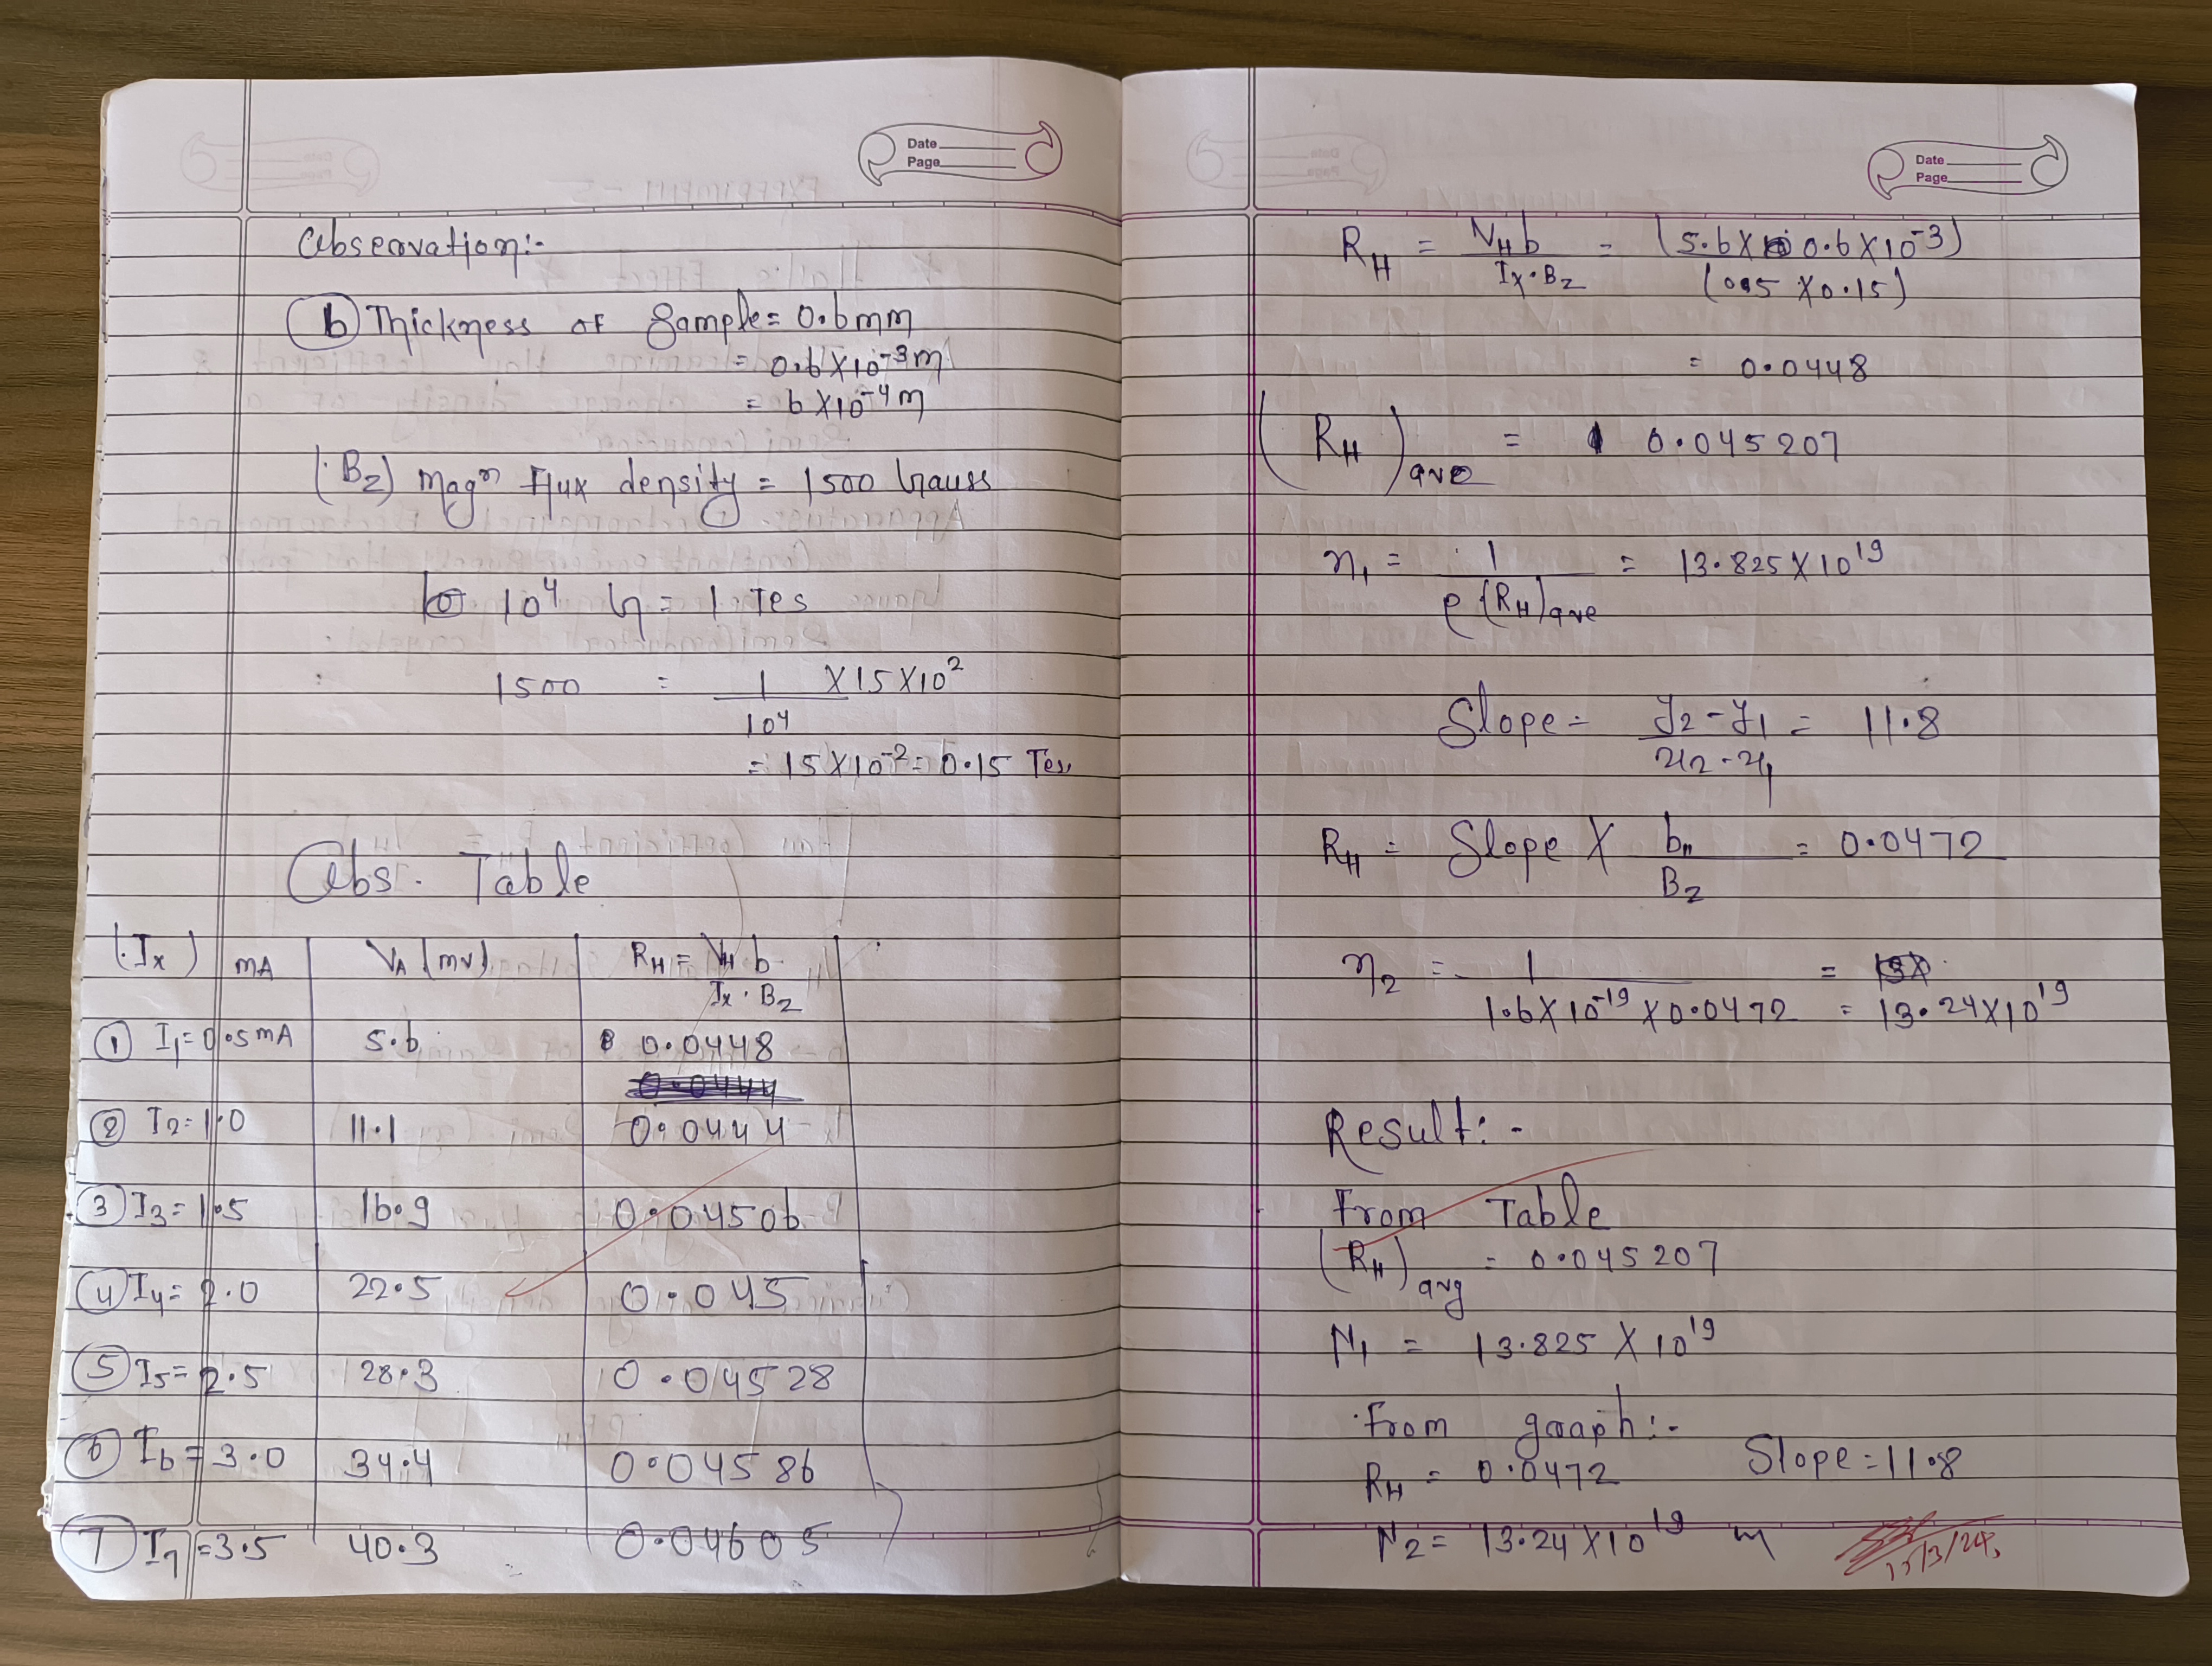 Date
Page
Observation:-
(b) Thickness of Sample = 0.6mm
= 0.6X10⁻³m
= 6X10⁻⁴m
(B₂) magⁿ Flux density = 1500 Gauss
10⁴ G = 1 Tes
1500 = 1/10⁴ X15X10²
= 15X10⁻² = 0.15 Tes
Obs. Table
(Ix) mA VA (mv) RH = VH b / Ix . B₂
① I₁=0.5mA 5.6 0.0448
0.0444
② I₂=1.0 11.1 0.0444
③ I₃=1.5 16.9 0.04506
④ I₄=2.0 22.5 0.045
⑤ I₅=2.5 28.3 0.04528
⑥ I₆=3.0 34.4 0.04586
⑦ I₇=3.5 40.3 0.04605
Date
Page
RH = VH b / Ix . B₂ = (5.6X 0.6X10⁻³) / (0.5 X0.15)
= 0.0448
(RH)ave = 0.045207
n₁ = 1 / e (RH)ave = 13.825X10¹⁹
Slope = y₂-y₁ / x₂-x₁ = 11.8
RH = Slope X b / B₂ = 0.0472
n₂ = 1 / 1.6X10⁻¹⁹X0.0472 =
= 13.24X10¹⁹
Result:-
From Table
(RH)avg = 0.045207
N₁ = 13.825 X 10¹⁹
From graph:-
RH = 0.0472 Slope = 11.8
N₂ = 13.24X10¹⁹